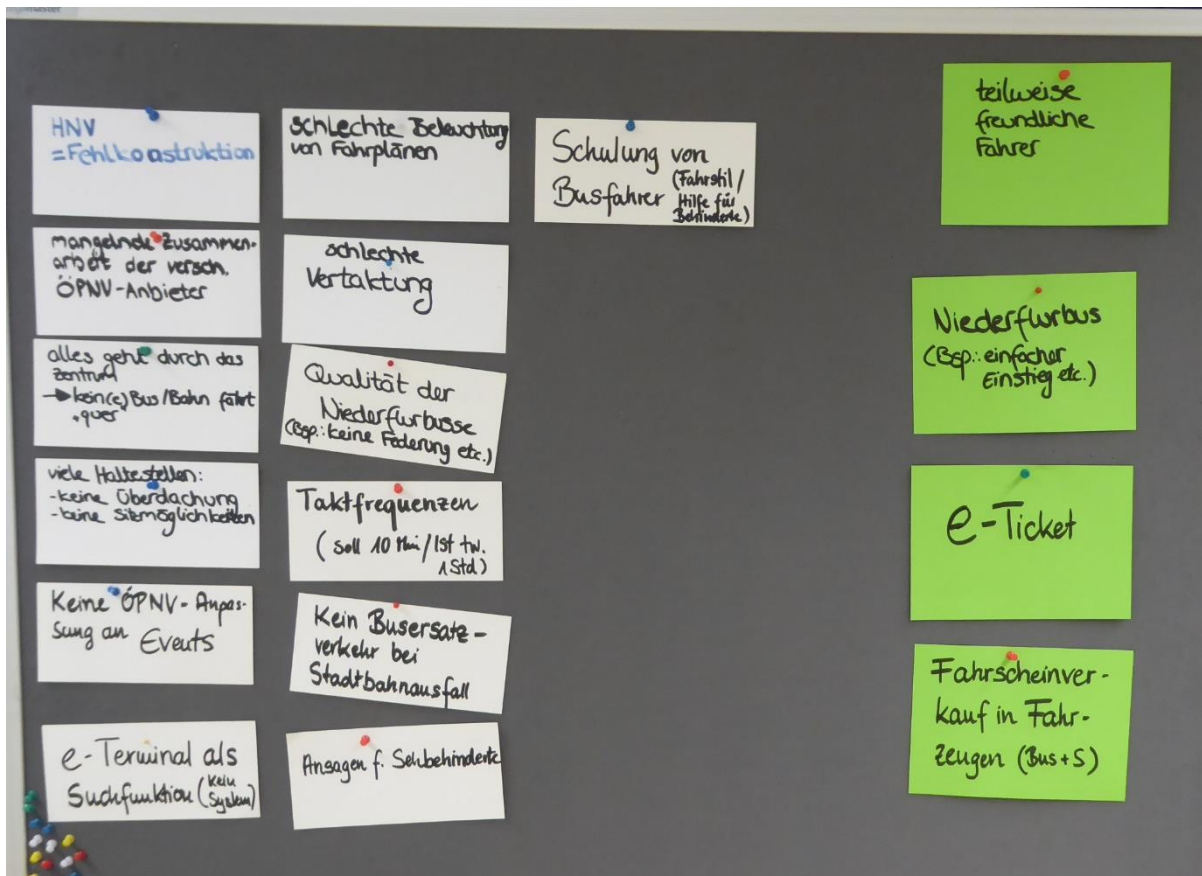 HNV
=Fehlkonstruktion
mangelnde Zusammen-
arbeit der versch.
ÖPNV-Anbieter
alles geht durch das
Zentrum
→ kein(e) Bus/Bahn fährt
"quer"
viele Haltestellen:
-keine Überdachung
-keine Sitzmöglichkeiten
Keine ÖPNV-Anpas-
sung an Events
e-Terminal als
Suchfunktion (kein
System)
schlechte Beleuchtung
von Fahrplänen
schlechte
Vertaktung
Qualität der
Niederflurbusse
(Bsp.: keine Federung etc.)
Taktfrequenzen
(soll 10 Min/Ist tw.
1 Std)
Kein Busersatz-
verkehr bei
Stadtbahnausfall
Ansagen f. Sehbehinderte
Schulung von
Busfahrer (Fahrstil/
Hilfe für
Behinderte)
teilweise
freundliche
Fahrer
Niederflurbus
(Bsp.: einfacher
Einstieg etc.)
e-Ticket
Fahrscheinver-
kauf in Fahr-
zeugen (Bus+S)